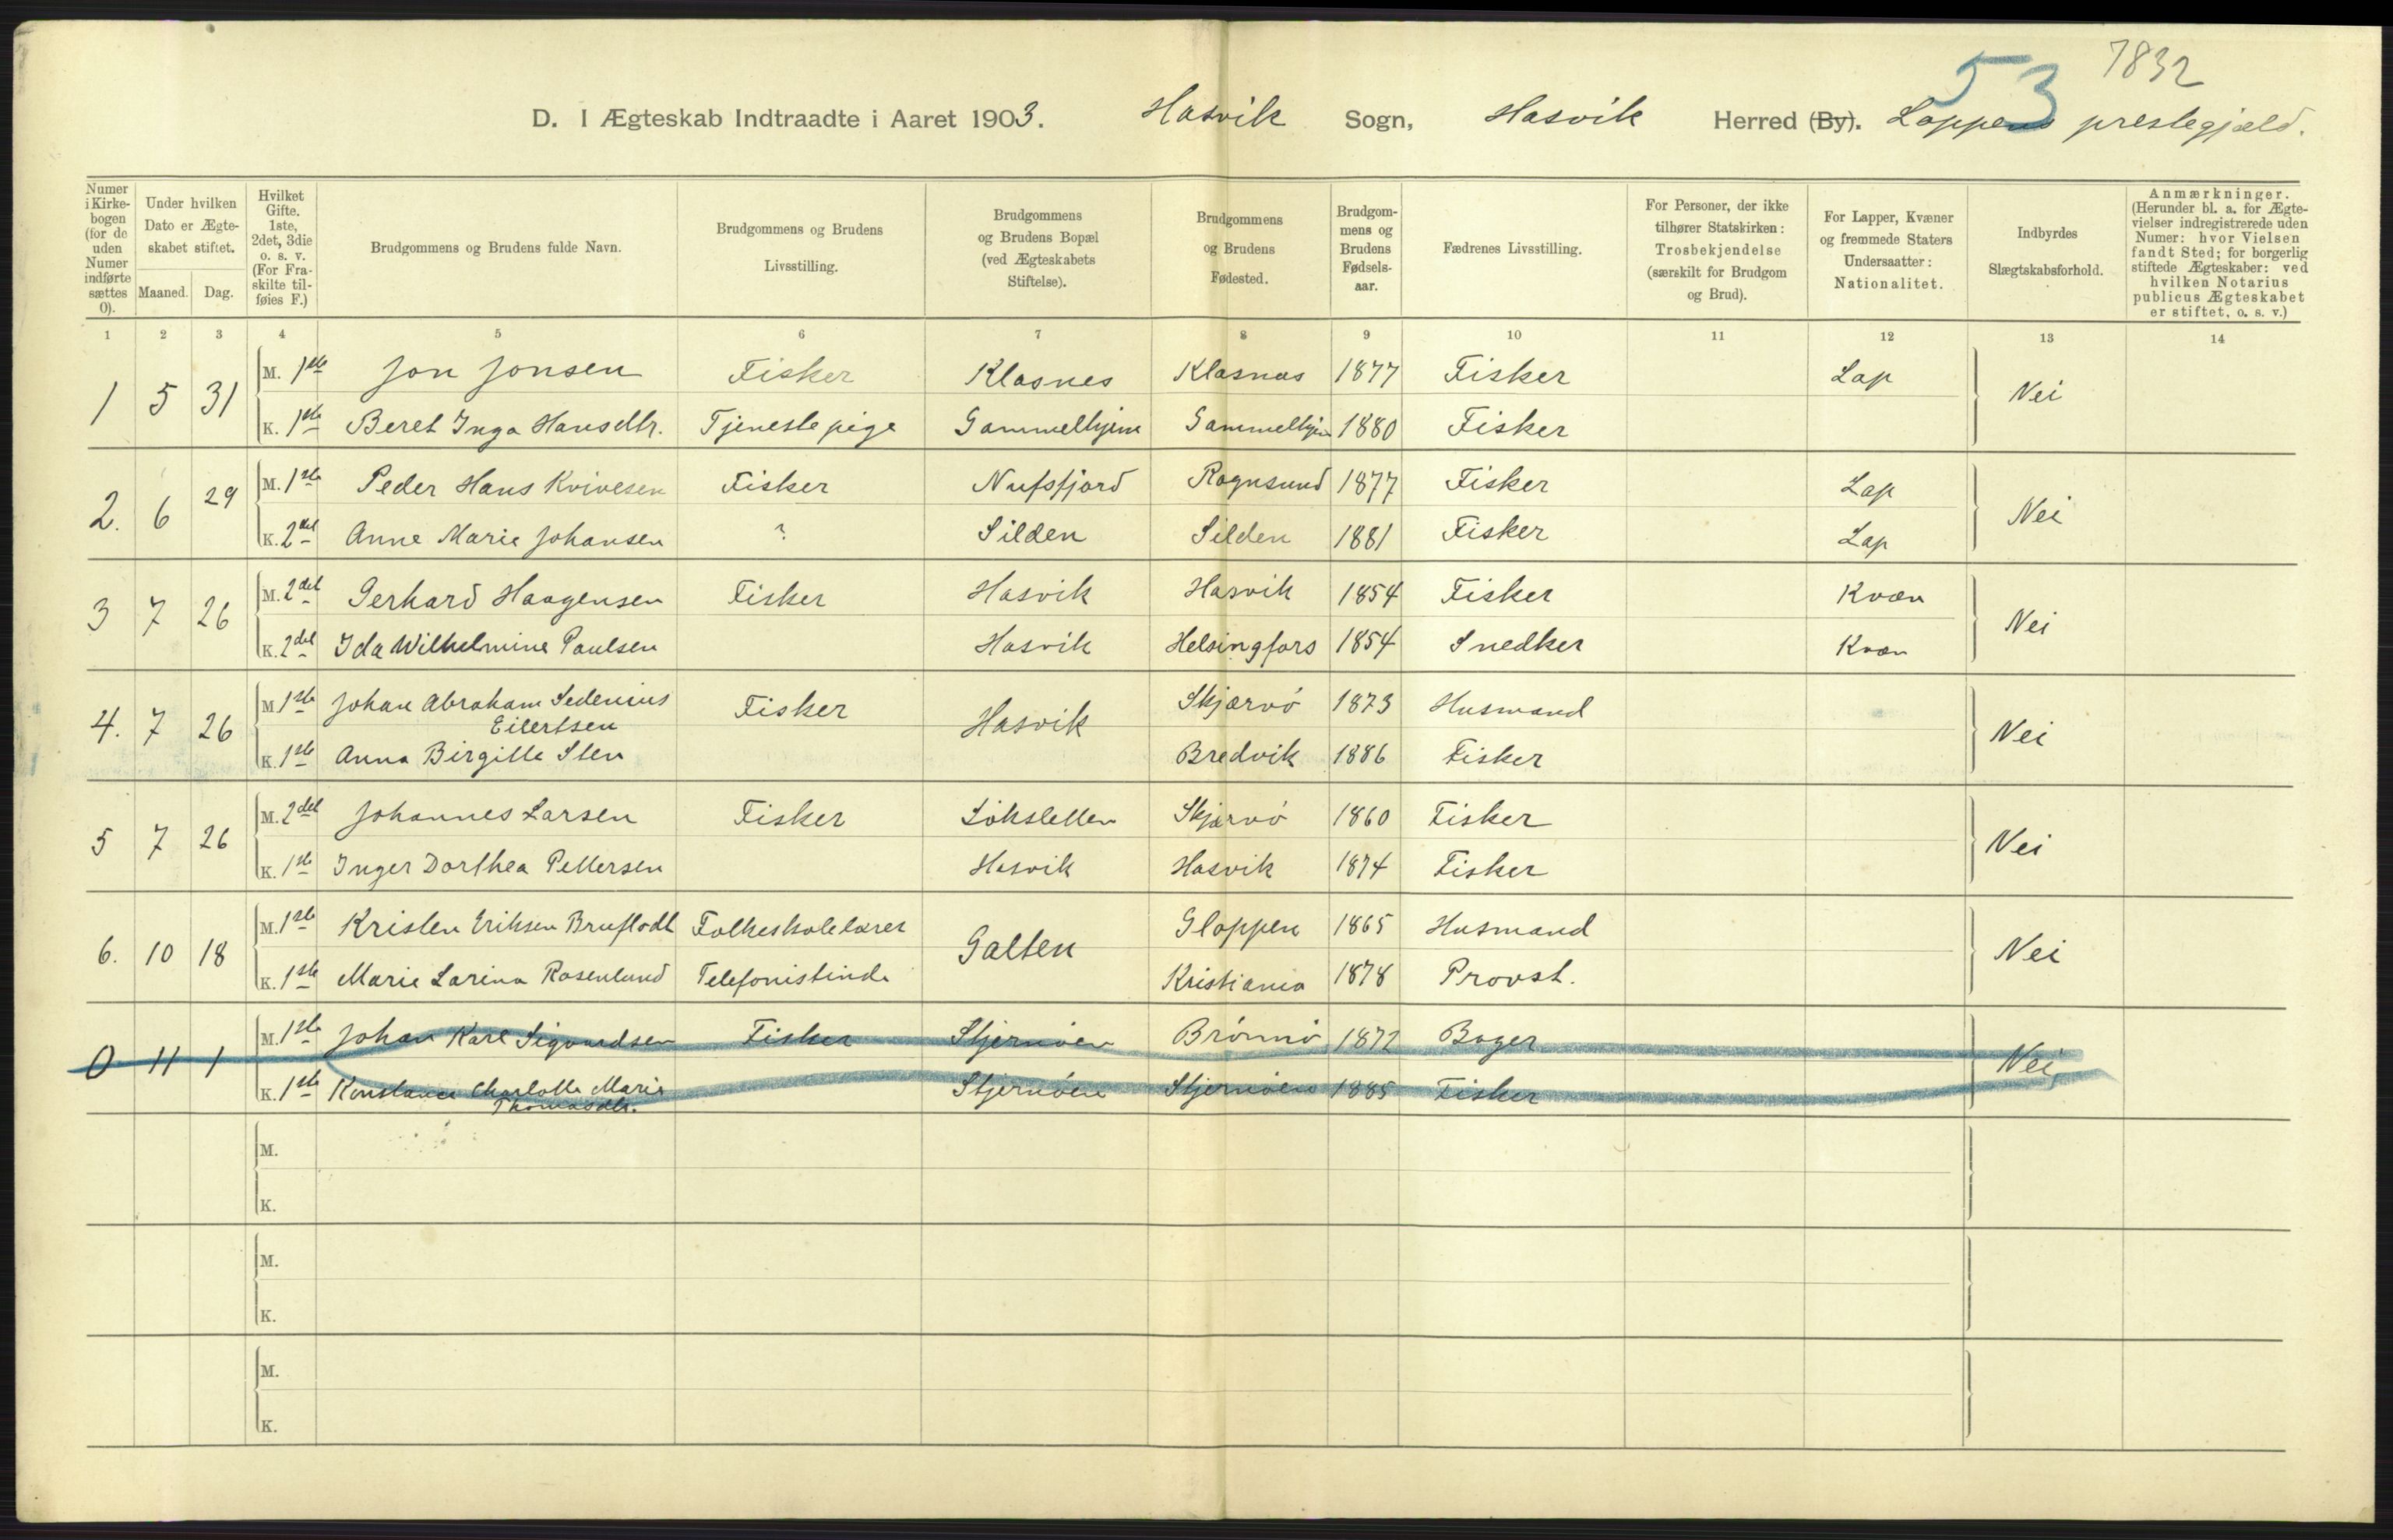 7832
53
D. I Ægteskab Indtraadte i Aaret 1903. Hasvik Sogn, Hasvik Herred (By). Loppens prestegjæld.
Numer i Kirkebogen (for de uden Numer indførte sættes 0).
Under hvilken Dato er Ægteskabet stiftet.
Maaned.
Dag.
Hvilket Gifte. 1ste, 2det, 3die o. s. v. (For Fraskilte tilføies F.)
Brudgommens og Brudens fulde Navn.
Brudgommens og Brudens Livsstilling.
Brudgommens og Brudens Bopæl (ved Ægteskabets Stiftelse).
Brudgommens og Brudens Fødested.
Brudgommens og Brudens Fødselsaar.
Fædrenes Livsstilling.
For Personer, der ikke tilhører Statskirken: Trosbekjendelse (særskilt for Brudgom og Brud).
For Lapper, Kvæner og fremmede Staters Undersaatter: Nationalitet.
Indbyrdes Slægtskabsforhold.
Anmærkninger. (Herunder bl. a. for Ægtevielser indregistrerede uden Numer: hvor Vielsen fandt Sted; for borgerlig stiftede Ægteskaber: ved hvilken Notarius publicus Ægteskabet er stiftet, o. s. v.)
1 2 3 4 5 6 7 8 9 10 11 12 13 14
1 5 31 M. 1ste Jon Jonsen Fisker Klasnes Klasnæs 1877 Fisker Lap Nei
K. 1ste Beret Inga Hansdtr. Tjenestepige Gammelhjem Gammelhjem 1880 Fisker
2. 6 29 M. 1ste Peder Hans Kvivesen Fisker Nufsfjord Rognsund 1877 Fisker Lap Nei
K. 2det Anne Marie Johansen ? Silden Silden 1881 Fisker Lap
3 7 26 M. 2det Gerhard Haagensen Fisker Hasvik Hasvik 1854 Fisker Kvæn Nei
K. 2det Ida Wilhelmine Paulsen Hasvik Helsingfors 1854 Snedker Kvæn
4. 7 26 M 1ste Johan Abraham Sedenius Eilertsen Fisker Hasvik Skjærvö 1873 Husmand Nei
K. 1ste Anna Birgitte Sten Bredvik 1886 Fisker
5 7 26 M. 2det Johannes Larsen Fisker Löksletten Skjærvö 1860 Fisker Nei
K. 1ste Inger Dorthea Pettersen Hasvik Hasvik 1874 Fisker
6. 10 18 M. 1ste Kristen Eriksen Bruflodt Folkeskolelærer Galten Gloppen 1865 Husmand Nei
K. 1ste Marie Larina Rosenlund Telefonistinde Kristiania 1878 Provst.
0 11 1 M. 1ste Johan Karl Sigvardsen Fisker Stjernöen Brönnö 1872 Bager Nei
K. 1ste Konstance Charlotte Marie Thomasdtr. Stjernöen Stjernöen 1885 Fisker
M.
K.
M.
K.
M.
K.